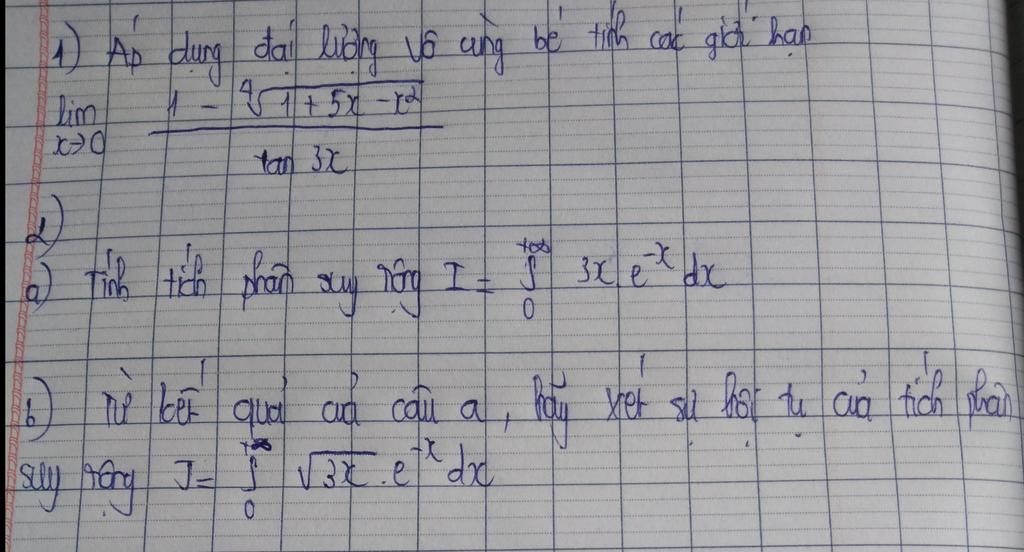 1) Áp dụng đại lượng vô cùng bé tính các giới hạn
lim x→0 (1 - ⁴√(1 + 5x - x²)) / (tan 3x)
2)
a) Tính tích phân suy rộng I = ∫₀^{+∞} 3x e^{-x} dx
b) Từ kết quả của câu a, hãy xét sự hội tụ của tích phân
suy rộng J = ∫₀^{+∞} √(3x) . e^{-x} dx